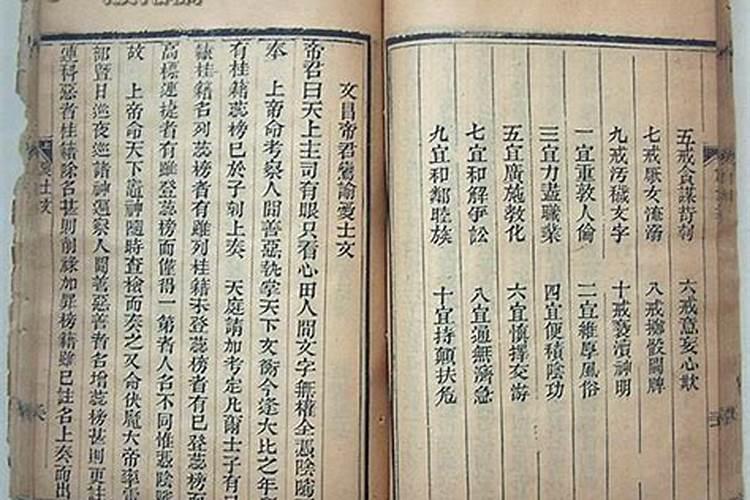 五戒貪謀苛刻 六戒意妄心欺
七戒厭女淹溺 八戒擲骰鬪牌
九戒污穢文字 十戒褻瀆神明
一宜重敦人倫 二宜維厚風俗
三宜力盡職業 四宜便積陰功
五宜廣施教化 六宜慎擇交游
七宜和解爭訟 八宜通無濟急
九宜和鄰睦族 十宜持顛扶危
文昌帝君鸞諭愛士文
帝君曰天上主司有眼只看心田人間文字無權全憑陰隲
奉 上帝命考察人間善惡執掌天下文衡今逢大比之年
有桂籍蕊榜已於子刻上奏 天庭請加考定凡爾士子有
桂籍名列蕊榜者有雖列桂籍未登蕊榜者有已登蕊榜
高標連捷者有雖登蕊榜而僅得一第者人名不同惟憑陰隲
故 上帝命天下遊神隨時查檢而奏之又命伏魔大帝率
部暨日巡夜巡諸神遍察人間善惡善者名增蕊榜甚則更
連科惡者桂籍除名甚則削祿加罪榜籍雖已註名上奏而出
愛士文